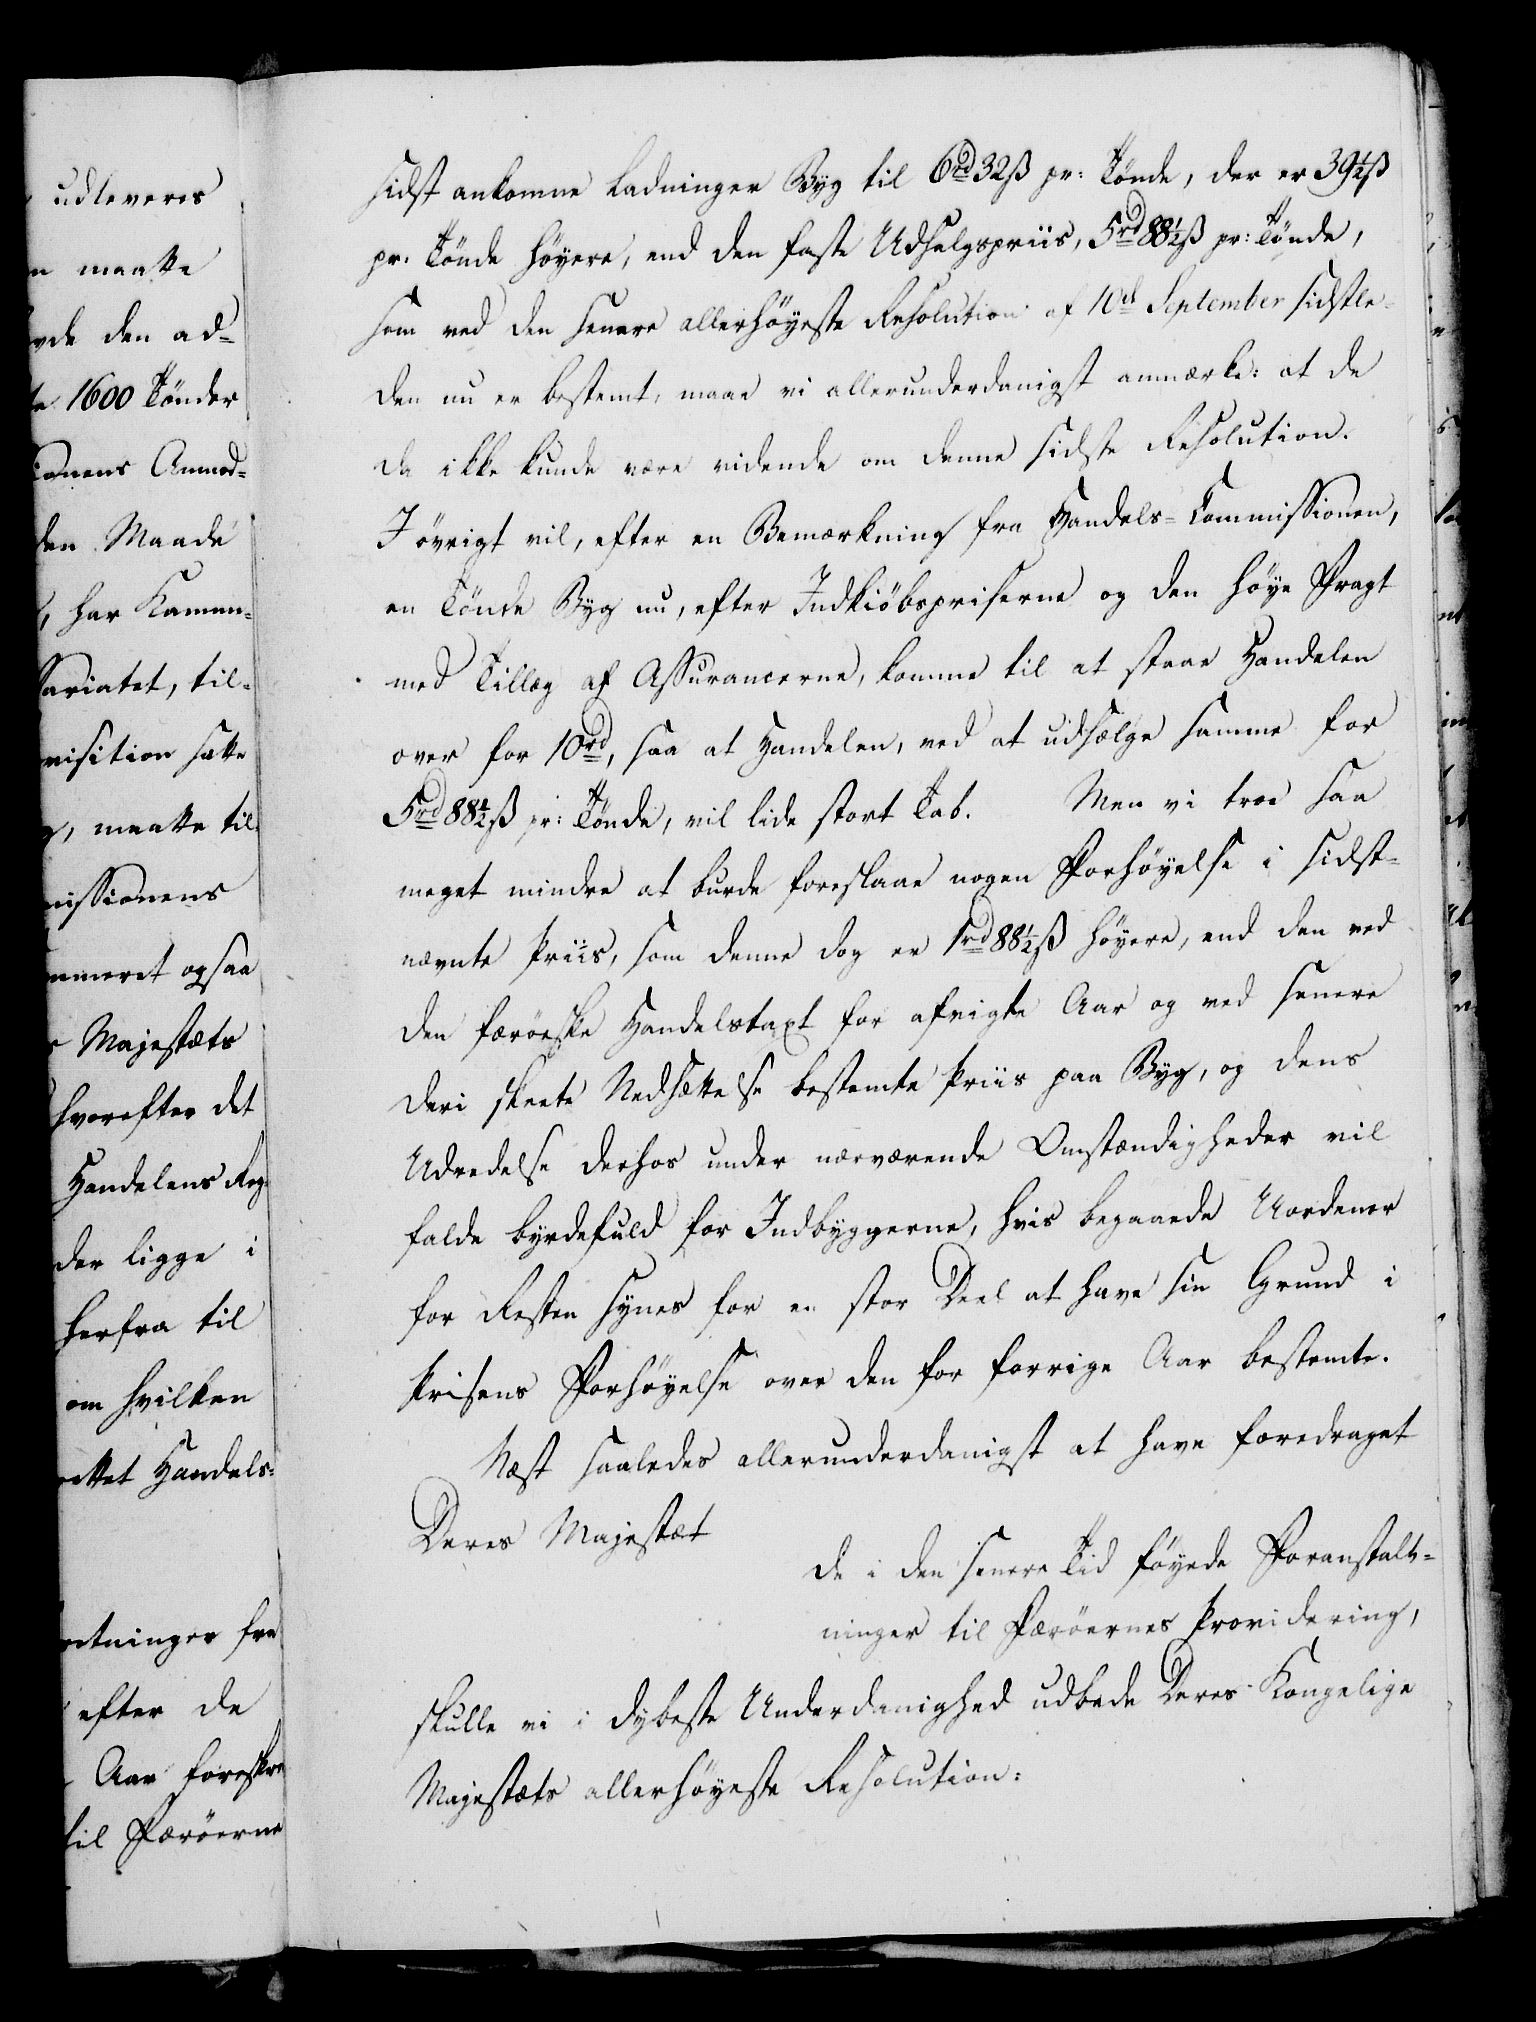 udleveres
maatte
den ad=
1600 Tönder
Anmod=
den Maade
, har Kamme=
sariatet, til=
sition sætte
, maatte til=
missionens
meret ogsaa
Majestæts
hvorefter det
Handelens Reg=
der ligge i
herfra til
om hvilken
rettet Handels=
retninger fra
efter de
Aar foreskre
til Færöerne
sidst ankomne Ladninger Byg til 6rd 32ß pr: Tönde, der er 39½ß
pr. Tönde höyere, end den faste Udsalgspriis, 5rd 88½ß pr: Tönde,
som ved den senere allerhöyeste Resolution af 10de September sidstle=
den nu er bestemt, maae vi allerunderdanigst anmærke: at de
da ikke kunde være vidende om denne sidste Resolution.
I övrigt vil, efter en Bemærkning fra Handels=Commissionen,
en Tönde Byg nu, efter Indkiöbspriserne og den höye Fragt
med Tillæg af Assurancerne, komme til at staae Handelen
over for 10rd, saa at Handelen, ved at udsælge samme for
5rd 88½ß pr: Tönde, vil lide stort Tab. Men vi troe saa
meget mindre at burde foreslaae nogen Forhöyelse i sidst=
nævnte Priis, som denne dog er 1rd 88½ß höyere, end den ved
den færöeske Handelstaxt for afvigte Aar og ved senere
deri skeete Nedsættelse bestemte Priis paa Byg, og dens
Udredelse derhos under nærværende Omstændigheder vil
falde byrdefuld for Indbyggerne, hvis begaaede Uordener
for Resten synes for en stor Deel at have sin Grund i
Prisens Forhöyelse over den for forrige Aar bestemte.
Næst saaledes allerunderdanigst at have foredraget
Deres Majestæt
de i den senere Tid föyede Foranstalt=
ninger til Færöernes Providering,
skulle vi i dybeste Underdanighed udbede Deres Kongelige
Majestæts allerhöyeste Resolution: